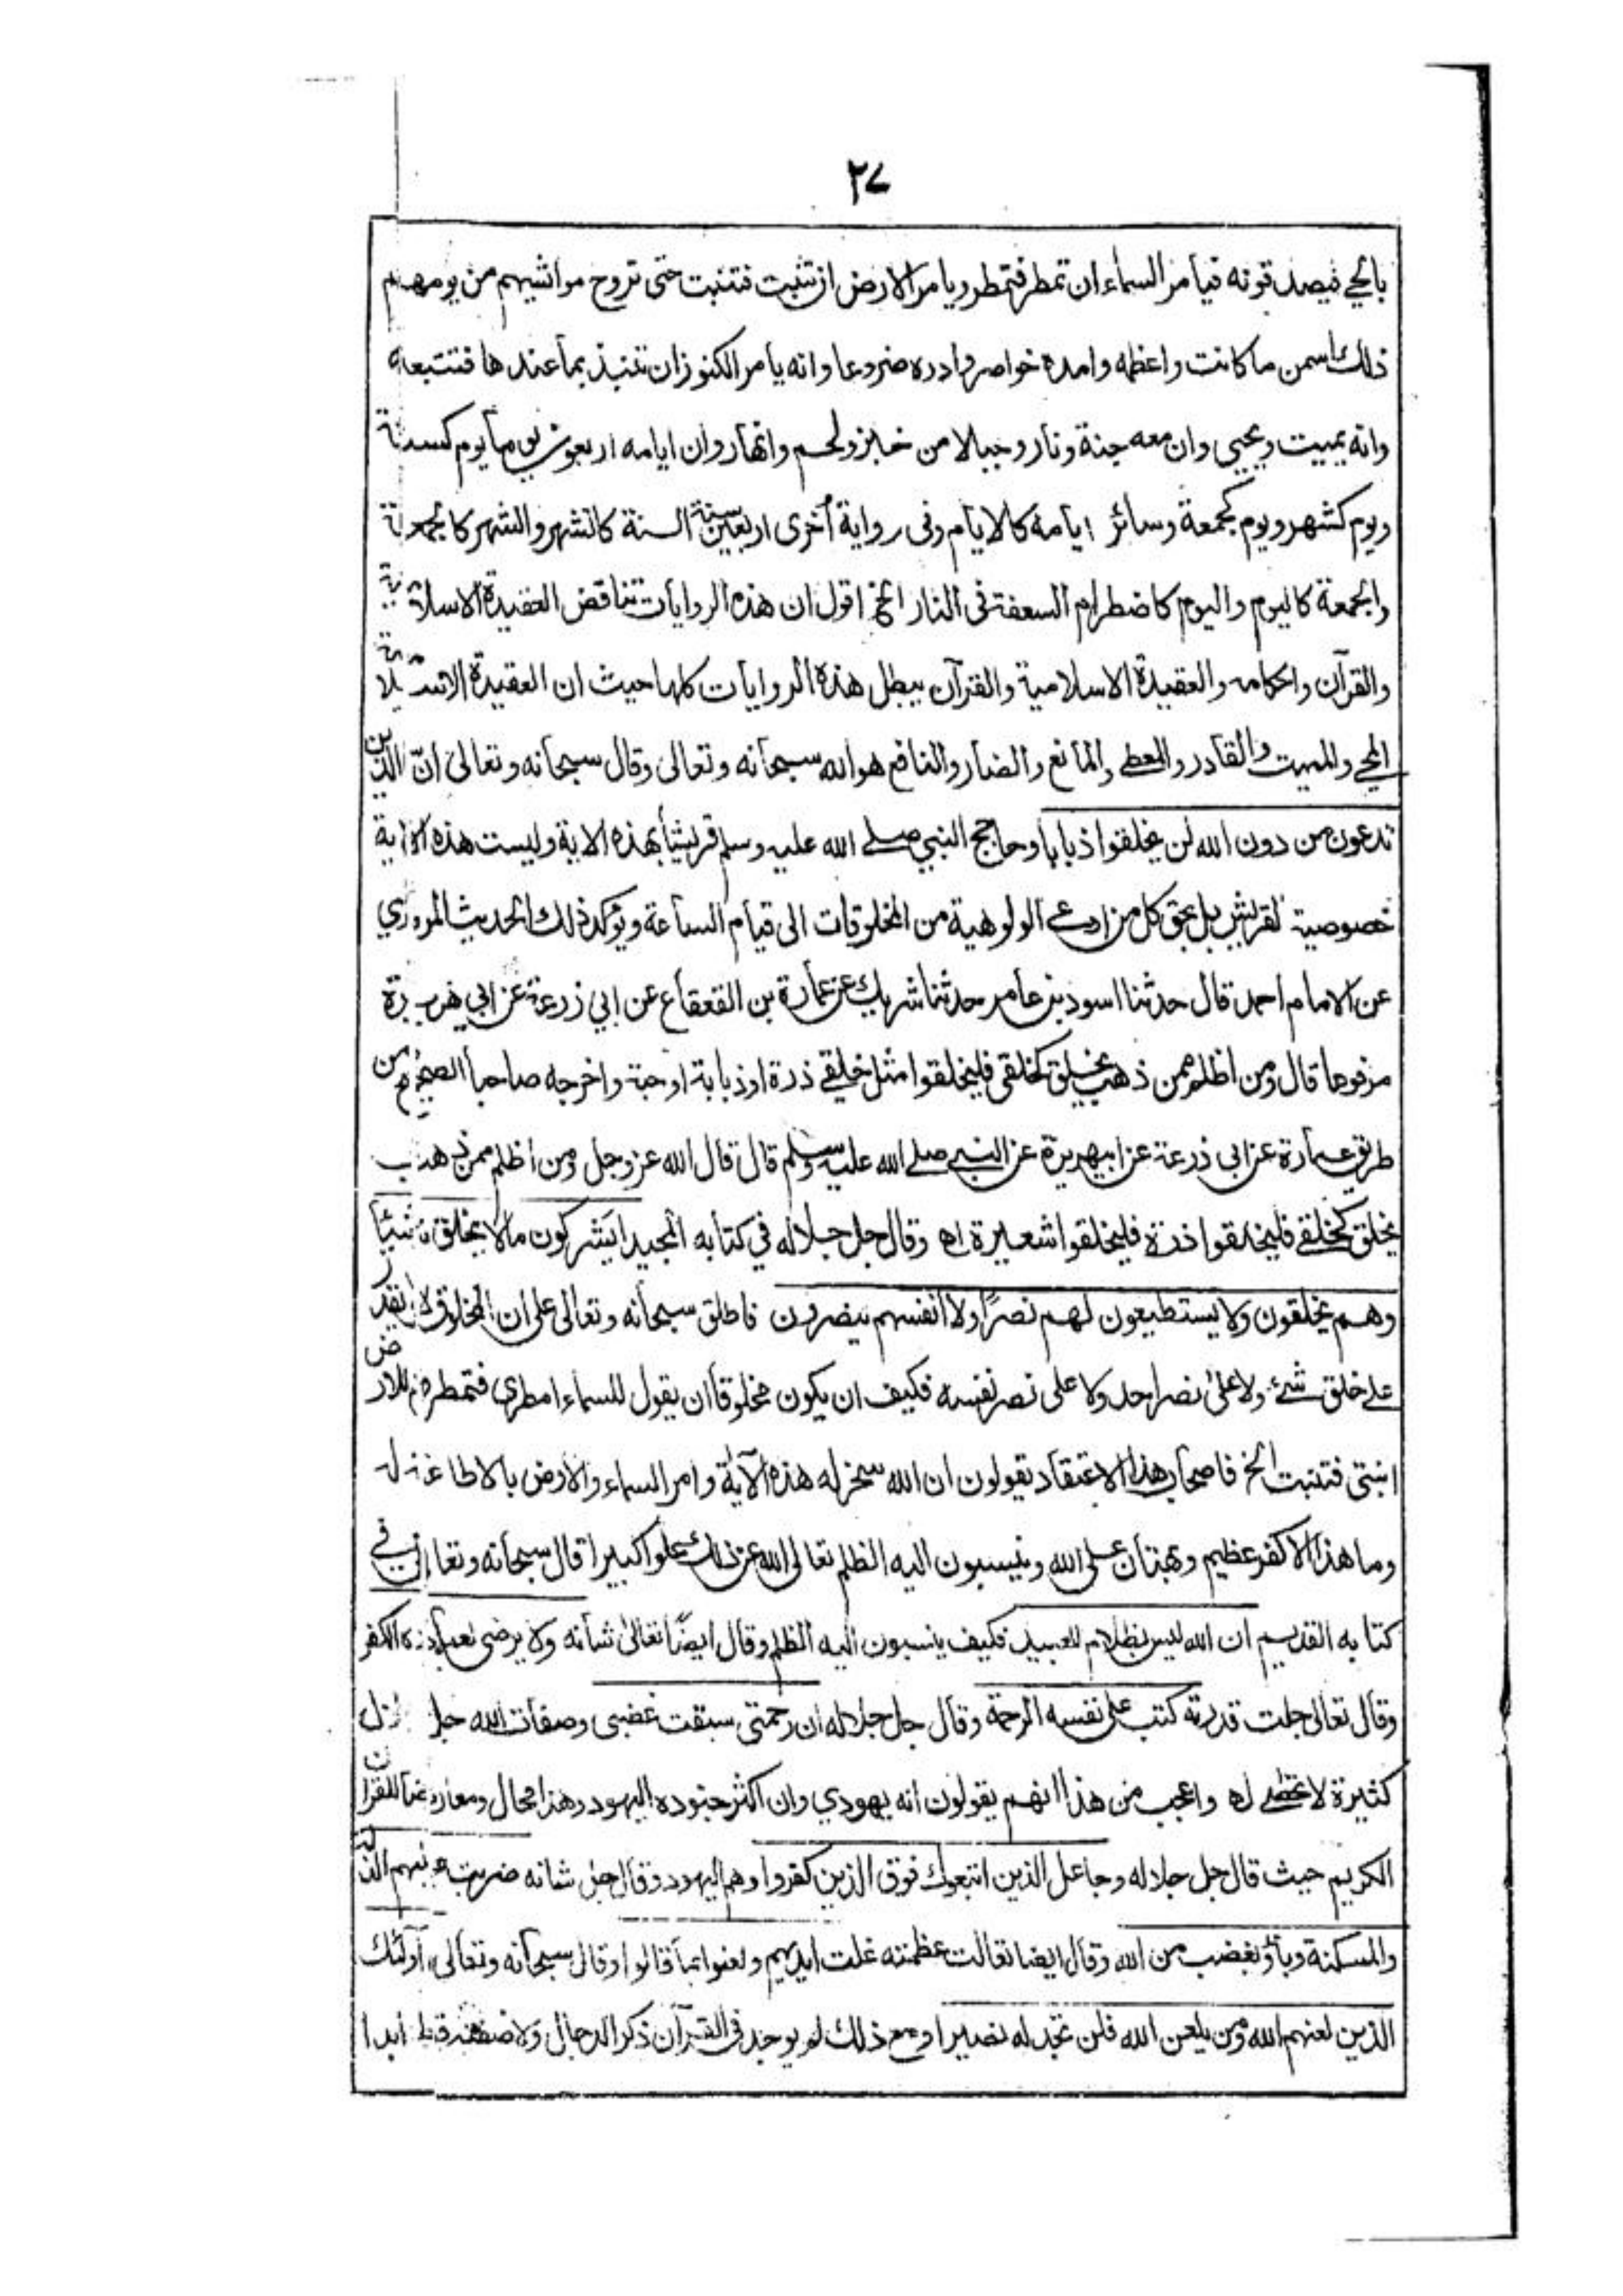 ٢٧
بالحي فيصدقونه فيأمر السماء ان تمطر فتمطر ويامر الارض ان تنبت فتنبت حتى تروح مواشيهم من يومهم
ذلك اسمن ما كانت واعظمه وامده خواصر وادره ضروعا وانه يأمر الكنوز ان تنبذ بما عندها فتتبعه
وانه يميت ويحيي وان معه جنة ونار وجبالا من خبز ولحم وانهار وان ايامه اربعون يوما يوم كسنة
ويوم كشهر ويوم كجمعة وسائر ايامه كالايام وفى رواية أخرى اربعين سنة السنة كالشهر والشهر كالجمعة
والجمعة كاليوم واليوم كاضطرام السعفة فى النار الخ اقول ان هذه الروايات تناقض العقيدة الاسلامية
والقرآن واحكامه والعقيدة الاسلامية والقرآن يبطل هذه الروايات كلها حيث ان العقيدة الاسلامية
المحي والمميت والقادر والمعطي والمانع والضار والنافع هو الله سبحانه وتعالى وقال سبحانه وتعالى انّ الذين
تدعون من دون الله لن يخلقوا ذبابا وحاجج النبي صلے الله عليه وسلم قريشاً بهذه الاية وليست هذه الآية
خصوصية لقريش بل بحق كل من ادعى الولوهية من المخلوقات الى قيام الساعة ويؤكد ذلك الحديث المروي
عن الامام احمد قال حدثنا اسود بن عامر حدثنا شريك عن عمارة بن القعقاع عن ابي زرعة عن ابي هريرة
مرفوعا قال ومن اظلم ممن ذهب يخلق كخلقي فليخلقوا مثل خلقے ذرة او ذبابة او حبة واخرجه صاحبا الصحيح من
طريق عمارة عن ابى زرعة عن ابيهريرة عن النبي صلے الله عليه وسلم قال قال الله عزوجل ومن اظلم ممن ذهب
يخلق كخلقے فليخلقوا ذرة فليخلقوا شعيرة اه وقال جل جلاله في كتابه المجيد ايشركون مالا يخلق شيئاً
وهم يخلقون ولا يستطيعون لهم نصرًا ولا انفسهم ينصرون فاطلق سبحانه وتعالى على ان المخلوق لا يقدر
علے خلق شئ ولا على نصر احد ولا على نصر نفسه فكيف ان يكون مخلوقا ان يقول للسماء امطرى فتمطر وللارض
انبتى فتنبت الخ فاصحاب هذا الاعتقاد يقولون ان الله سخر له هذه الآية وامر السماء والارض بالاطاعة له
وما هذا الا كفر عظيم وبهتان على الله وينسبون اليه الظلم تعالى الله عن ذلك علوا كبيرا قال سبحانه وتعالى في
كتابه القديم ان الله ليس بظلام للعبيد فكيف ينسبون اليه الظلم وقال ايضًا تعالى شانه ولا يرضى لعباده الكفر
وقال تعالى جلت قدرته كتب على نفسه الرحمة وقال جل جلاله ان رحمتى سبقت غضبى وصفات الله جل
كثيرة لا تحصى له واعجب من هذا انهم يقولون انه يهودي وان اكثر جنوده اليهود وهذا محال ومعارضا للقران
الكريم حيث قال جل جلاله وجاعل الذين اتبعوك فوق الذين كفروا وهم اليهود وقال جل شانه ضربت عليهم الذلة
والمسكنة وباؤ بغضب من الله وقال ايضا تعالت عظمته غلت ايديهم ولعنوا بما قالوا وقال سبحانه وتعالى اولئك
الذين لعنهم الله ومن يلعن الله فلن تجد له نصيرا ومع ذلك لم يوجد فى القرآن ذكر الدجال ولا صفته قط ابدا